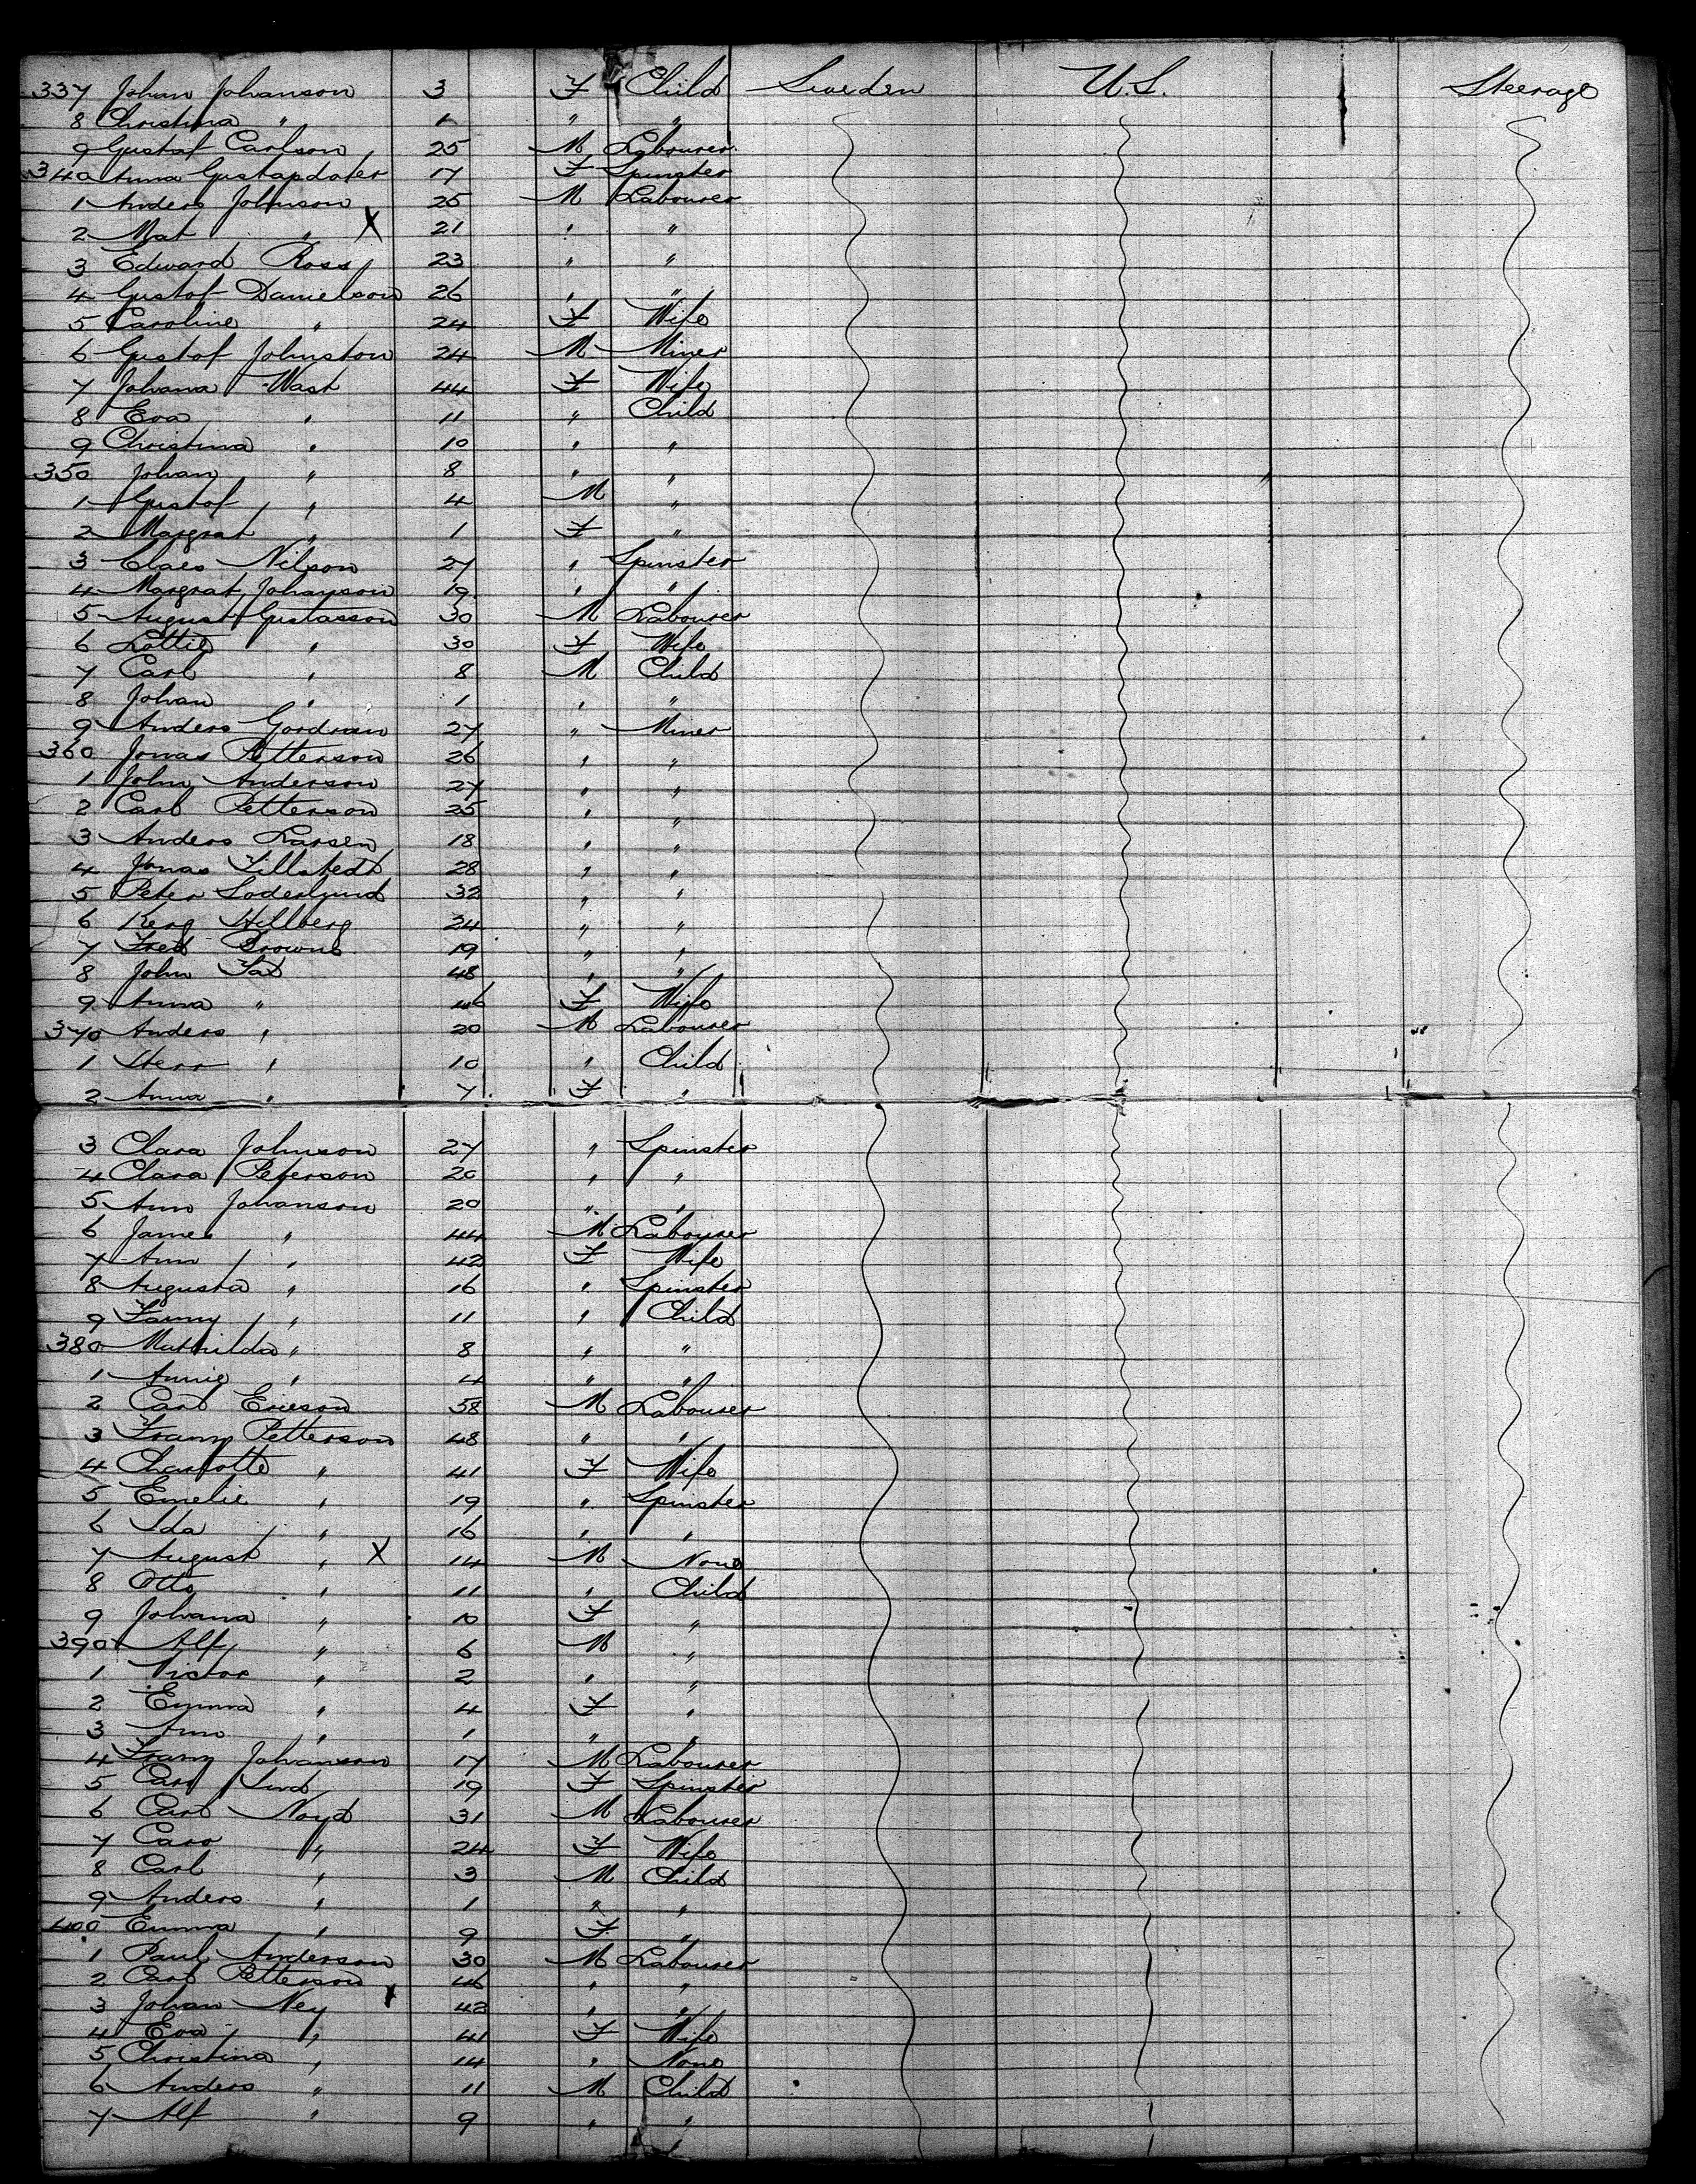 337 Johan Johanson 3 F Child Sweden U.S. Steerage
8 Christina " 1 " "
9 Gustaf Carlson 25 M Labourer
340 Anna Gustapdoter 17 F Spinster
1 Anders Johnson 25 M Labourer
2 Mat " X 21 " "
3 Edward Ross 23 " "
4 Gustof Danielson 26 " "
5 Caroline " 24 F Wife
6 Gustof Johnston 24 M Miner
7 Johana Wast 44 F Wife
8 Eva " 11 " Child
9 Christina " 10 " "
350 Johan " 8 " "
1 Gustof " 4 M "
2 Margrat " 1 F "
3 Claes Nilson 27 " Spinster
4 Margrat Johanson 19 " "
5 August Gustasson 30 M Labourer
6 Lottie " 30 F Wife
7 Carl " 8 M Child
8 Johan " 1 " "
9 Anders 27 " Miner
360 Jonas Petterson 26 " "
1 John Anderson 27 " "
2 Carl Petterson 25 " "
3 Anders Larsen 18 " "
4 Jonas Fillstedt 28 " "
5 Peter Soderlund 32 " "
6 Hillberg 24 " "
7 Fred Browne 19 " "
8 John 48 " "
9 Anna " 46 F Wife
370 Anders " 20 M Labourer
1 " 10 " Child
2 Anna " 7 F "
3 Clara Johnson 27 " Spinster
4 Clara Peterson 20 " "
5 Ann Johanson 20 " "
6 James " 44 M Labourer
7 Ann " 42 F Wife
8 Augusta " 16 " Spinster
9 Fanny " 11 " Child
380 Mathilda " 8 " "
1 Annie " 4 " "
2 Carl Ericson 58 M Labourer
3 Franz Petterson 48 " "
4 Charlotte " 41 F Wife
5 Emelie " 19 " Spinster
6 Ida " 16 " "
7 August " X 14 M None
8 Otto " 11 " Child
9 Johana " 10 F "
390 Alf " 6 M "
1 Victor " 2 " "
2 Emma " 4 F "
3 Ann " 1 " "
4 Franz Johanson 17 M Labourer
5 Carl Lind 19 F Spinster
6 Carl Noyd 31 M Labourer
7 Caro " 24 F Wife
8 Carl " 3 M Child
9 Anders " 1 " "
400 Emma " 9 F "
1 Paul Anderson 30 M Labourer
2 Carl Petterson 46 " "
3 Johan Ney 42 " "
4 Eva " 41 F Wife
5 Christina " 14 " None
6 Anders " 11 M Child
7 Alf " 9 " "